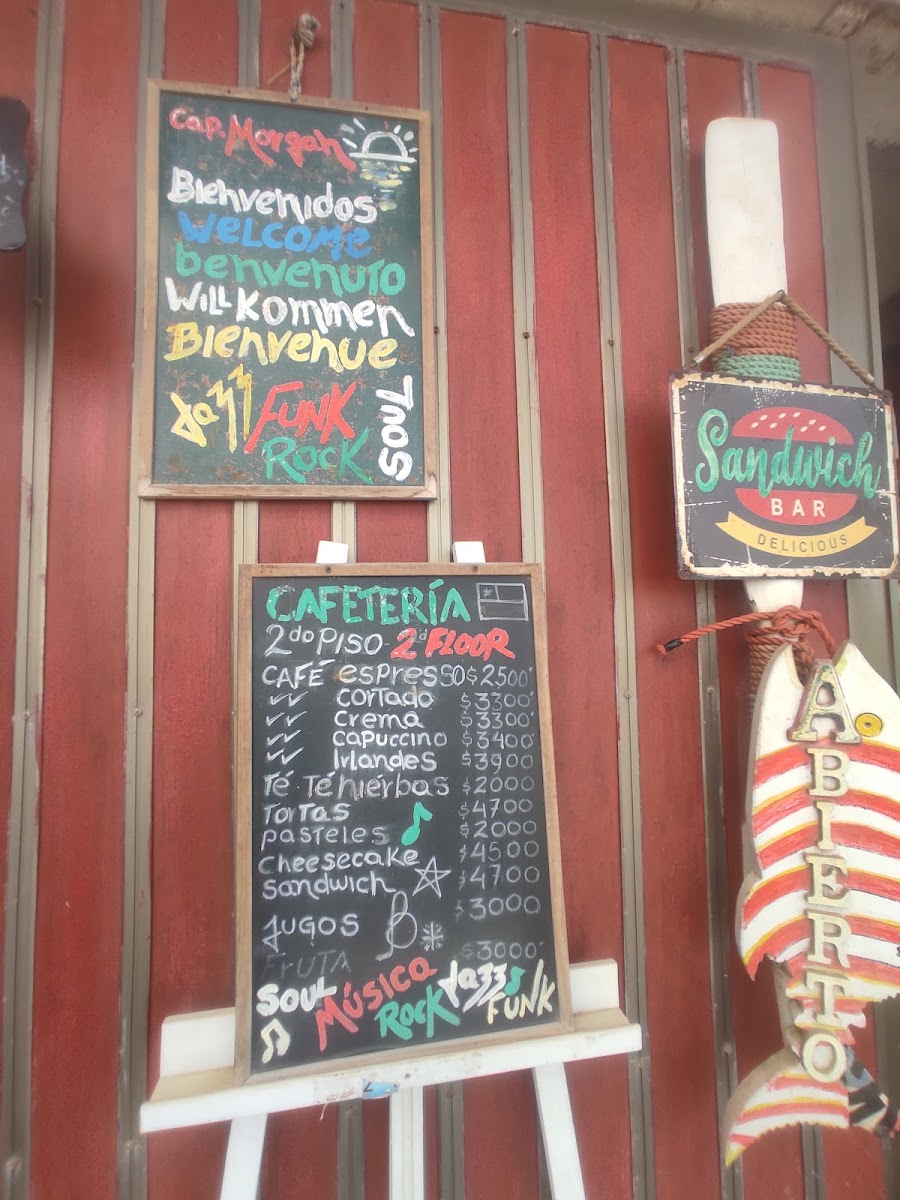 Cap. Morgan
Bienvenidos
WELCOME
benvenuto
WILLKommen
Bienvenue
Jazz FUNK
ROCK
SOUL
Sandwich
BAR
DELICIOUS
ABIERTO
CAFETERÍA
2do PISO - 2d FLOOR
CAFÉ espresso $2500
✓✓ cortado $3300
✓✓ crema $3300
✓✓ capuccino $3400
✓✓ Irlandes $3900
Té Té hierbas $2000
Tortas $4700
pasteles $2000
cheesecake $4500
sandwich $4700
Jugos $3000
FRUTA $3000
SOUL Música ROCK Jazz FUNK